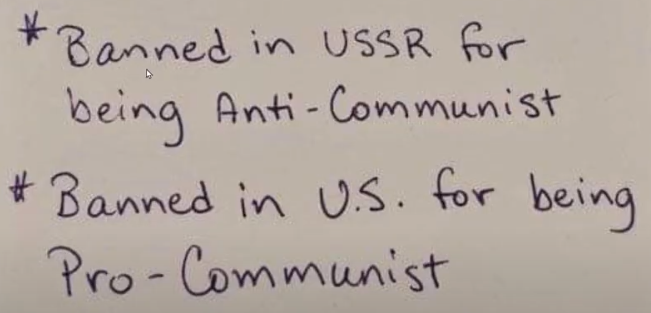 * Banned in USSR for
being Anti-Communist
* Banned in U.S. for being
Pro-Communist